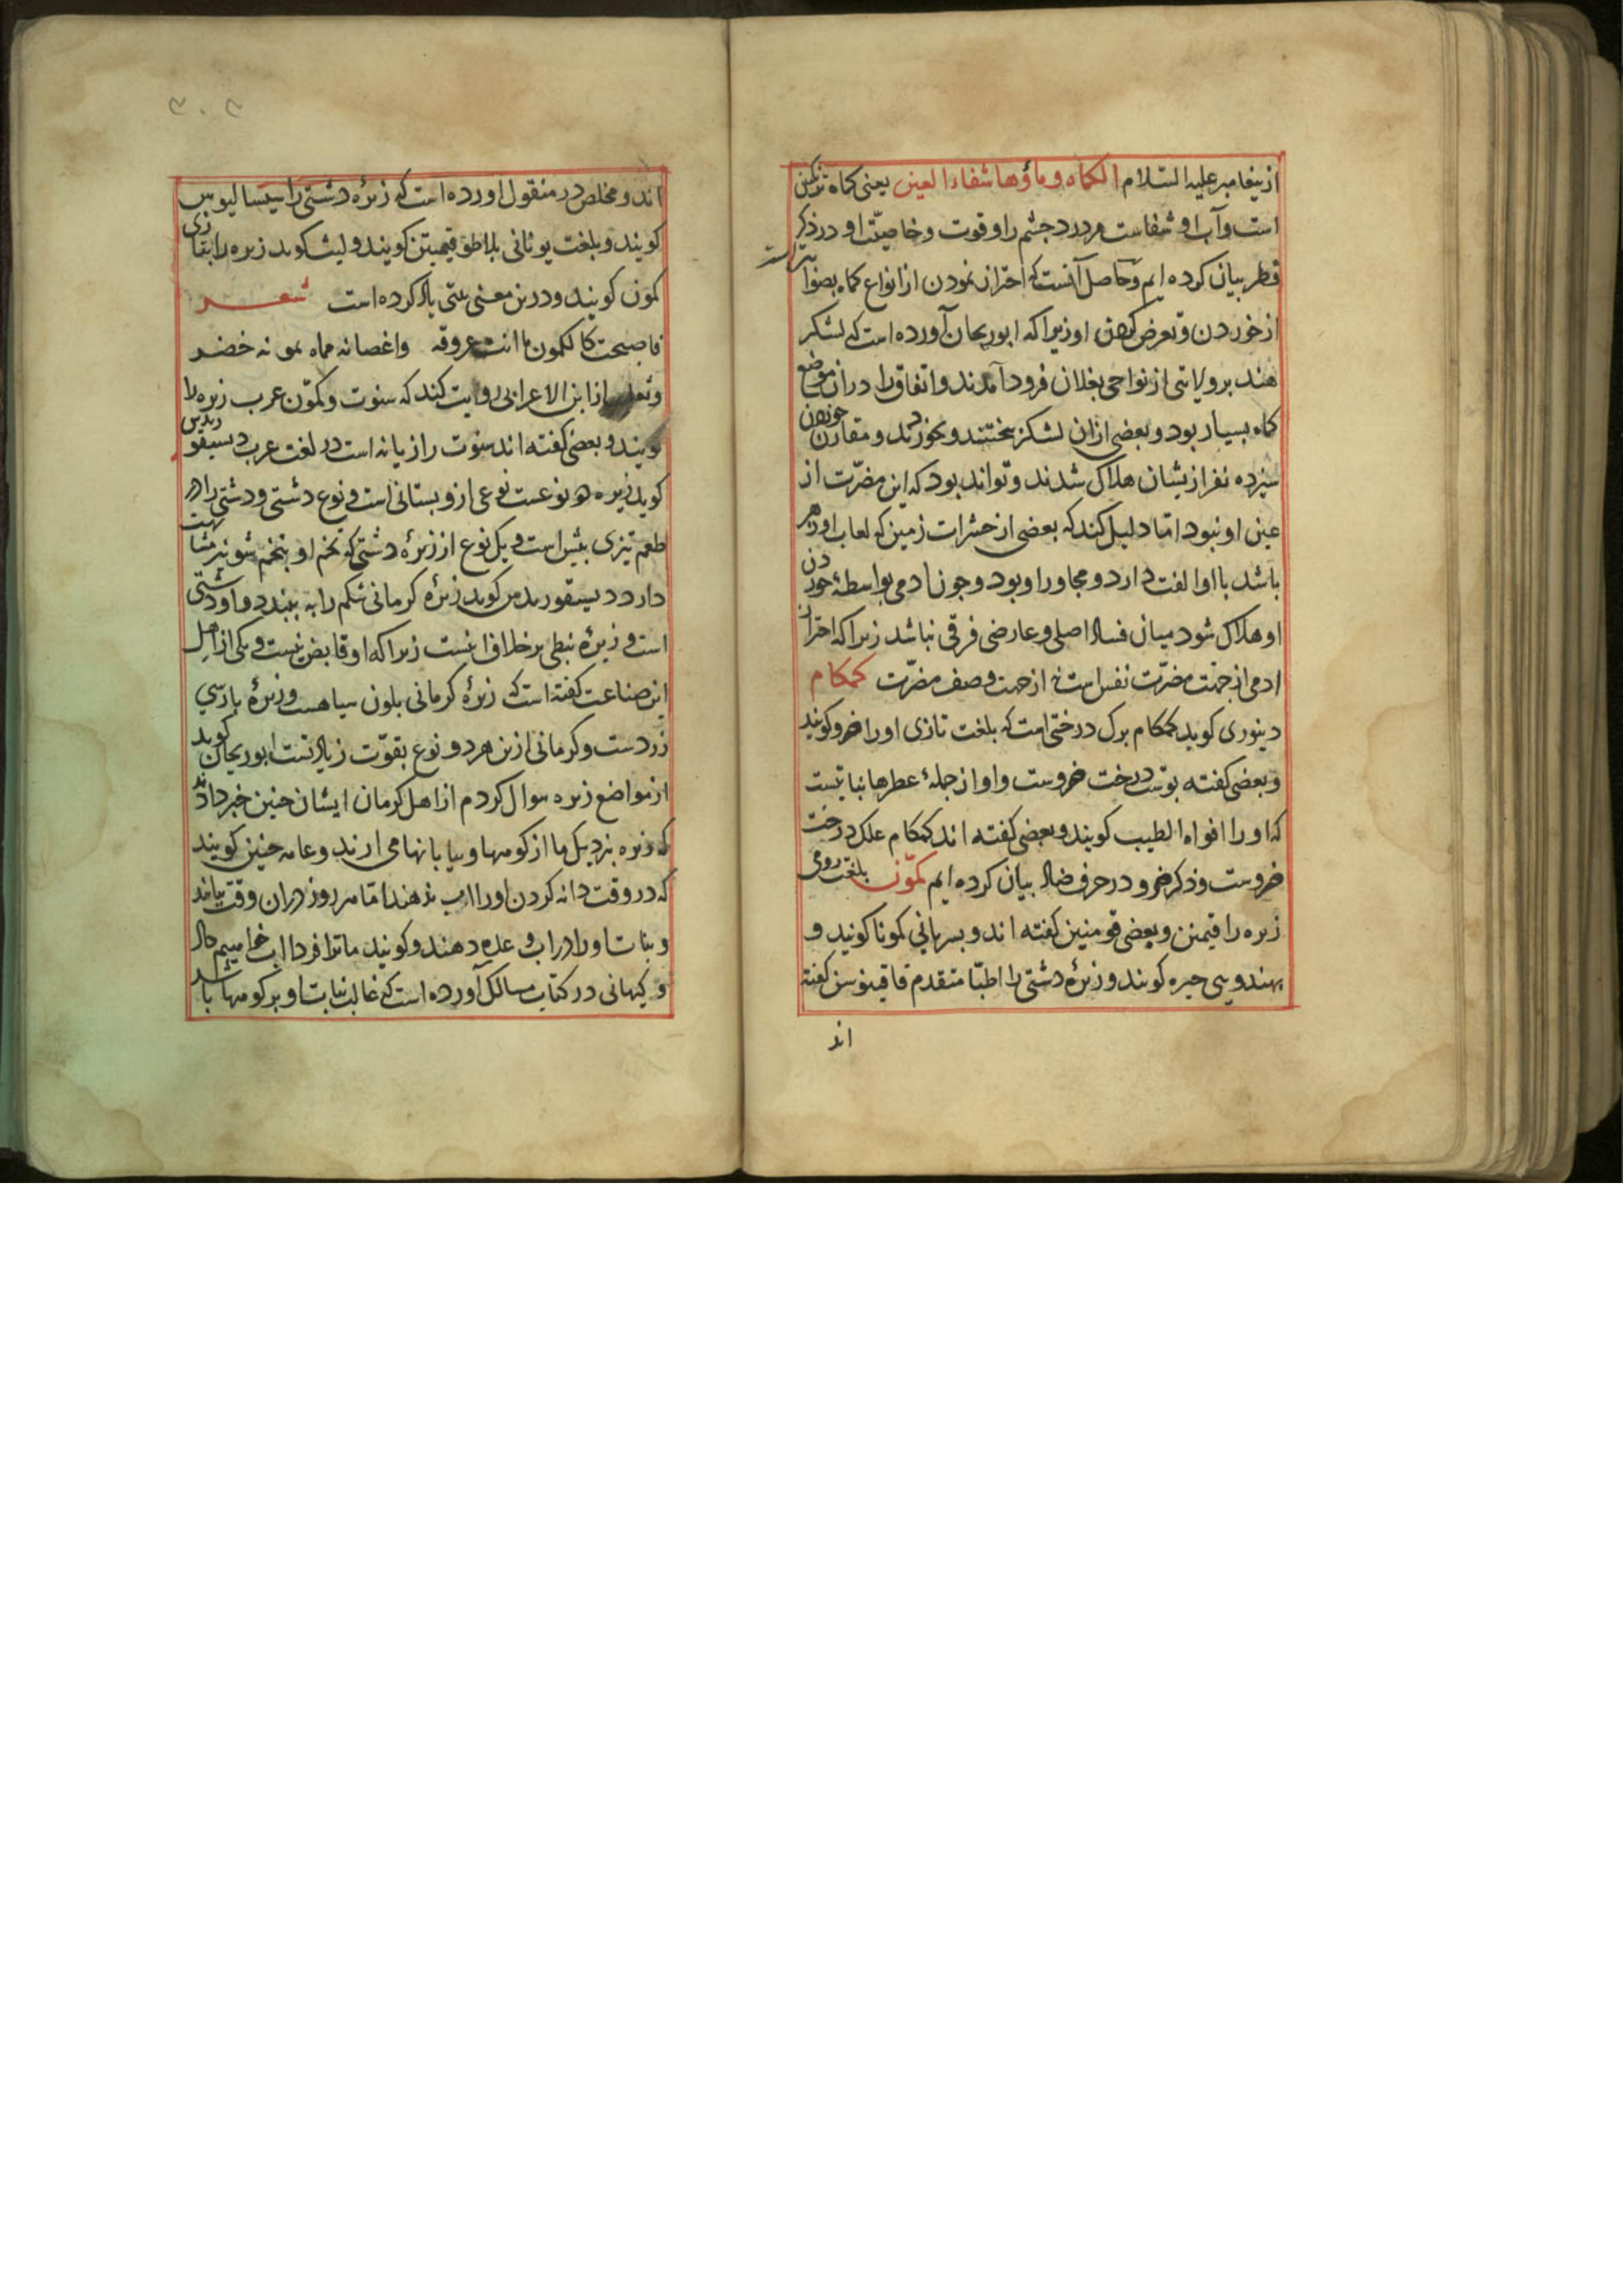 از پیغامبر علیه السّلام الکماه وماؤها شفاء العین یعنی کماه ترنکبین
است و آب او شفاست مر درد چشم را و قوت و خاصیّت او در ذکر
فطر بیان کرده ایم و حاصل آنست که احتراز نمودن از انواع کماه بصواب
از خوردن و تعرض او زیرا که ابوریحان آورده است که لشکر
هند بر ولایتی از نواحی بغلان فرود آمدند و اتفاق را در ان موضع
کماه بسیار بود و بعضی از ان لشکر بختند و بخوردند و مقارن خوردن
سیزده نفر ازیشان هلاک شدند و تواند بود که این مضرّت از
عین او نبود اما دلیل کند که بعضی از حشرات زمین که لعاب او زهر
باشد با او الفت دارد و مجاور او بود و چون ادمی بواسطهٔ خوردن
او هلاک شود میان فساد اصلی و عارضی فرقی نباشد زیرا که احتراز
ادمی از جهت مضرّت نفس است نه از جهت وصف مضرّت کمکام
دینوری کوید کمکام برک درختی است که بلغت تازی او را ضرو کویند
و بعضی کفته پوست درخت ضروست و او از جملهٔ عطرها نباتیست
که او را افواه الطیب کویند و بعضی کفته اند کمکام علک درخت
ضروست و ذکر ضرو در حرف ضاد بیان کرده ایم کمّون بلغت رومی
زیره را قیمنن و بعضی قومنین کفته اند و بسریانی کمونا کویند و
بهندوی جیره کویند و زیرهٔ دشتی را اطبّا متقدم فاقینوس کفته
اند
۳۰۳
اند و مخلص در منقول اورده است که زیرهٔ دشتی را سیسالیوس
کویند و بلغت یونانی بلاطق قیمیتن کویند و لیث کوید زیره را بتازی
کمون کویند و درین معنی بیتی یاد کرده است شعر
فاصبحت کالکمون ماتت عروقه واغصانه مماه خضر
و ثعلب از ابن الاعرابی روایت کند که سنوت و کمّون عرب زیره را
کویند و بعضی کفته اند سنوت رازیانه است در لغت عرب دیسقوریدس
کوید زیره دو نوعست نوعی ازو بستانی است و نوع دشتی و دشتی را در
طعم تیزی بیش است و یک نوع از زیرهٔ دشتی که تخم او بتخم شونیز مشابهت
دارد دیسقوریدس کوید زیرهٔ کرمانی شکم را به بندد و او دشتی
است و زیرهٔ نبطی بر خلاف اینست زیرا که او قابض نیست و یکی از اهل
این صناعت کفته است که زیرهٔ کرمانی بلون سیاهست و زیرهٔ پارسی
زردست و کرمانی ازین هر دو نوع بقوّت زیادتست ابوریحان کوید
از مواضع زیره سوال کردم از اهل کرمان ایشان چنین خبر دادند
که زیره بنزدیک ما از کوهها و بیابانها می ارند و عامه چنین کویند
که در وقت دانه کردن او را اب ندهند اما هر روز در ان وقت بیایند
و نبات او را در اب و عده دهند و کویند ما ترا فردا اب خواهیم داد
و کیهانی در کتاب مسالک آورده است که غالب نبات او بر کوهها باشد